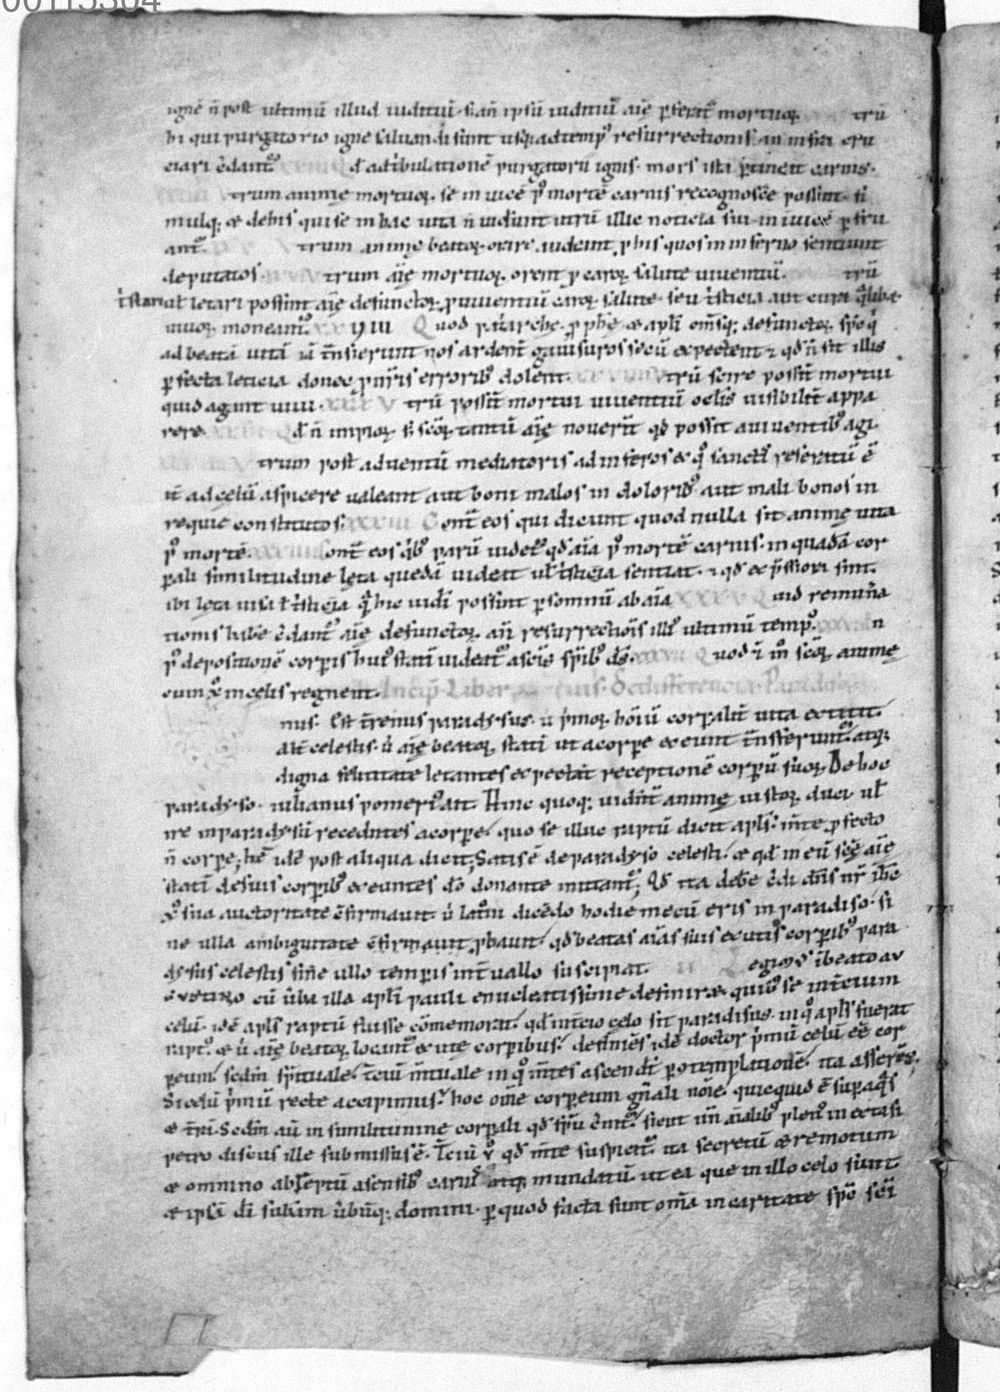 ignē n̄ post ultimū illud iudiciū. s; an̄ ipsū iudiciū aīę ꝑferat᷑ mortuoꝝ trū
hi qui purgatorio igne saluandi sunt usq; ad temp᷒ resurrectionis an in fine cru
ciari c̄dant᷑. qd ad tribulationē purgatorii ignis mors ista ꝑtineat carnis.
trum animę mortuoꝝ se inuicē p᷒ mortē carnis recognoscē possint. si
mulq; & de his qui se in hac uita n̄ uiderunt utrū illic noticia sui inuicē ꝑfru
ant᷑. trum animę beatoꝝ orare uideant᷑ ꝓ his quos in inferno sentiunt
deputatos. trum aīę mortuoꝝ orent ꝓ caroꝝ salute uiuentiū. trū
tristari ul̄ letari possint aīę defunctoꝝ ꝓ uiuentiū caroꝝ salute. seu tristicia aut cura
uiuoꝝ moneant᷑. Quod patriarche ꝓphę & apl̄i om̄sq; defunctoꝝ sp̄s q̄
ad beatā uitā iā trāsierunt nos ardent᷑ gauisuros secū expectent & qd n̄ sit illis
ꝑfecta leticia donec ꝓ nr̄is errorib᷒ dolent. trū scire possint mortui
quid agant uiui. trū possint mortui uiuentiū oclis uisibilit᷑ appa
rere qd n̄ impioꝝ s; scōꝝ tantū aīę nouerīt qd possit a uiuentib᷒ agi.
trum post aduentū mediatoris ad inferos & q̄ sancti reseratū ē
it᷑ ad cęlū aspicere ualeant aut boni malos in dolorib᷒ aut mali bonos in
requie constitutos. Cont᷑ eos qui dicunt quod nulla sit animę uita
p᷒ mortē. Cont᷑ eos q̄b᷒ parū uidet᷑ qd aīa p᷒ mortē carnis in quadā cor
ꝑali similitudine lęta quedā uideat ul̄ tristicia sentiat. & qd expssiora sint
ibi lęta uisa ł tristicia q̄ hic uidi possint ꝑ somnū ab aīa quid remuna
tionis habē c̄dant᷑ aīę defunctoꝝ an̄ resurrectiōis illi᷒ ultimū temp᷒. n
p᷒ depositionē corꝑis hui᷒ statī uideat᷑ a scīs sp̄ib᷒ ds̄. Quod & in̄ scōꝝ animę
cum xp̄o in celis regnent. Incip̄ Liber De differentia Paradisi
nus. Est trēnus paradysus. ū prīmoꝝ hoīū corꝑalit᷑ uita extitit.
alt᷑ celestis. ū aīę beatoꝝ statī ut a corꝑe exeunt trāsferunt᷑. atq;
digna felicitate letantes expectāt receptionē corꝑū suoꝝ. De hoc
paradyso. iulianus pomeri᷒ ait. Hinc quoq; uidēt᷑ animę iustoꝝ duci ul̄
ire in paradysū recedentes a corꝑe. quo se illuc raptū dicit apl̄s. mēte ꝓfecto
n̄ corꝑe. hēc idē post aliqua dicit. Satis ē de paradyso celesti. & qd in eū scę aīę
statī de suis corꝑib᷒ exeuntes dō donante mittant᷑. Qd ita debē c̄di dn̄s nr̄ ih̄c
xp̄s sua auctoritate c̄firmauit. ū latrōi dicēdo hodie mecū eris in paradiso. si
ne ulla ambiguitate c̄firmauit ꝓbauit. qd beatas aīas suis exutis corꝑib᷒ para
dysus celestis sine ullo temꝑis int᷑uallo suscipiat. Legim᷒ ī beato au
gustino cū ūba illa apl̄i pauli enucleatissime definiret. quib᷒ se in t᷑cium
celū. idē apl̄s raptū fuisse cōmemorat. qd in t᷑cio celo sit paradisus. in q̄ apl̄s fuerat
rapt᷒. & ū aīę beatoꝝ locant᷑ exutę corporibus. definiēs idē doctor prīmū celū eē cor
ꝑeum. scdm sp̄ituale. t᷑ciū mentuale in q̄ mēntes ascendit ꝑ contemplationē. ita asserēs.
Si celū prīmū recte accipimus. hoc om̄e corꝑeum gn̄ali noīe. quicquid ē sup aq̄s
& trā. Scdm aū in similitudine corꝑali qd sp̄u c̄nit᷑. sicut un̄ aīalib᷒ plen᷒ in extasi
petro discus ille submissus ē. T᷑ciū ū qd mēte suspicit᷑. ita secretū & remotum
& omnino abstractū a sensib᷒ carnis atq; mundatū. ut ea que in illo celo sunt
& ipsā dī subām ūbūq; domini. ꝑ quod facta sunt om̄a in caritate sp̄s sc̄i